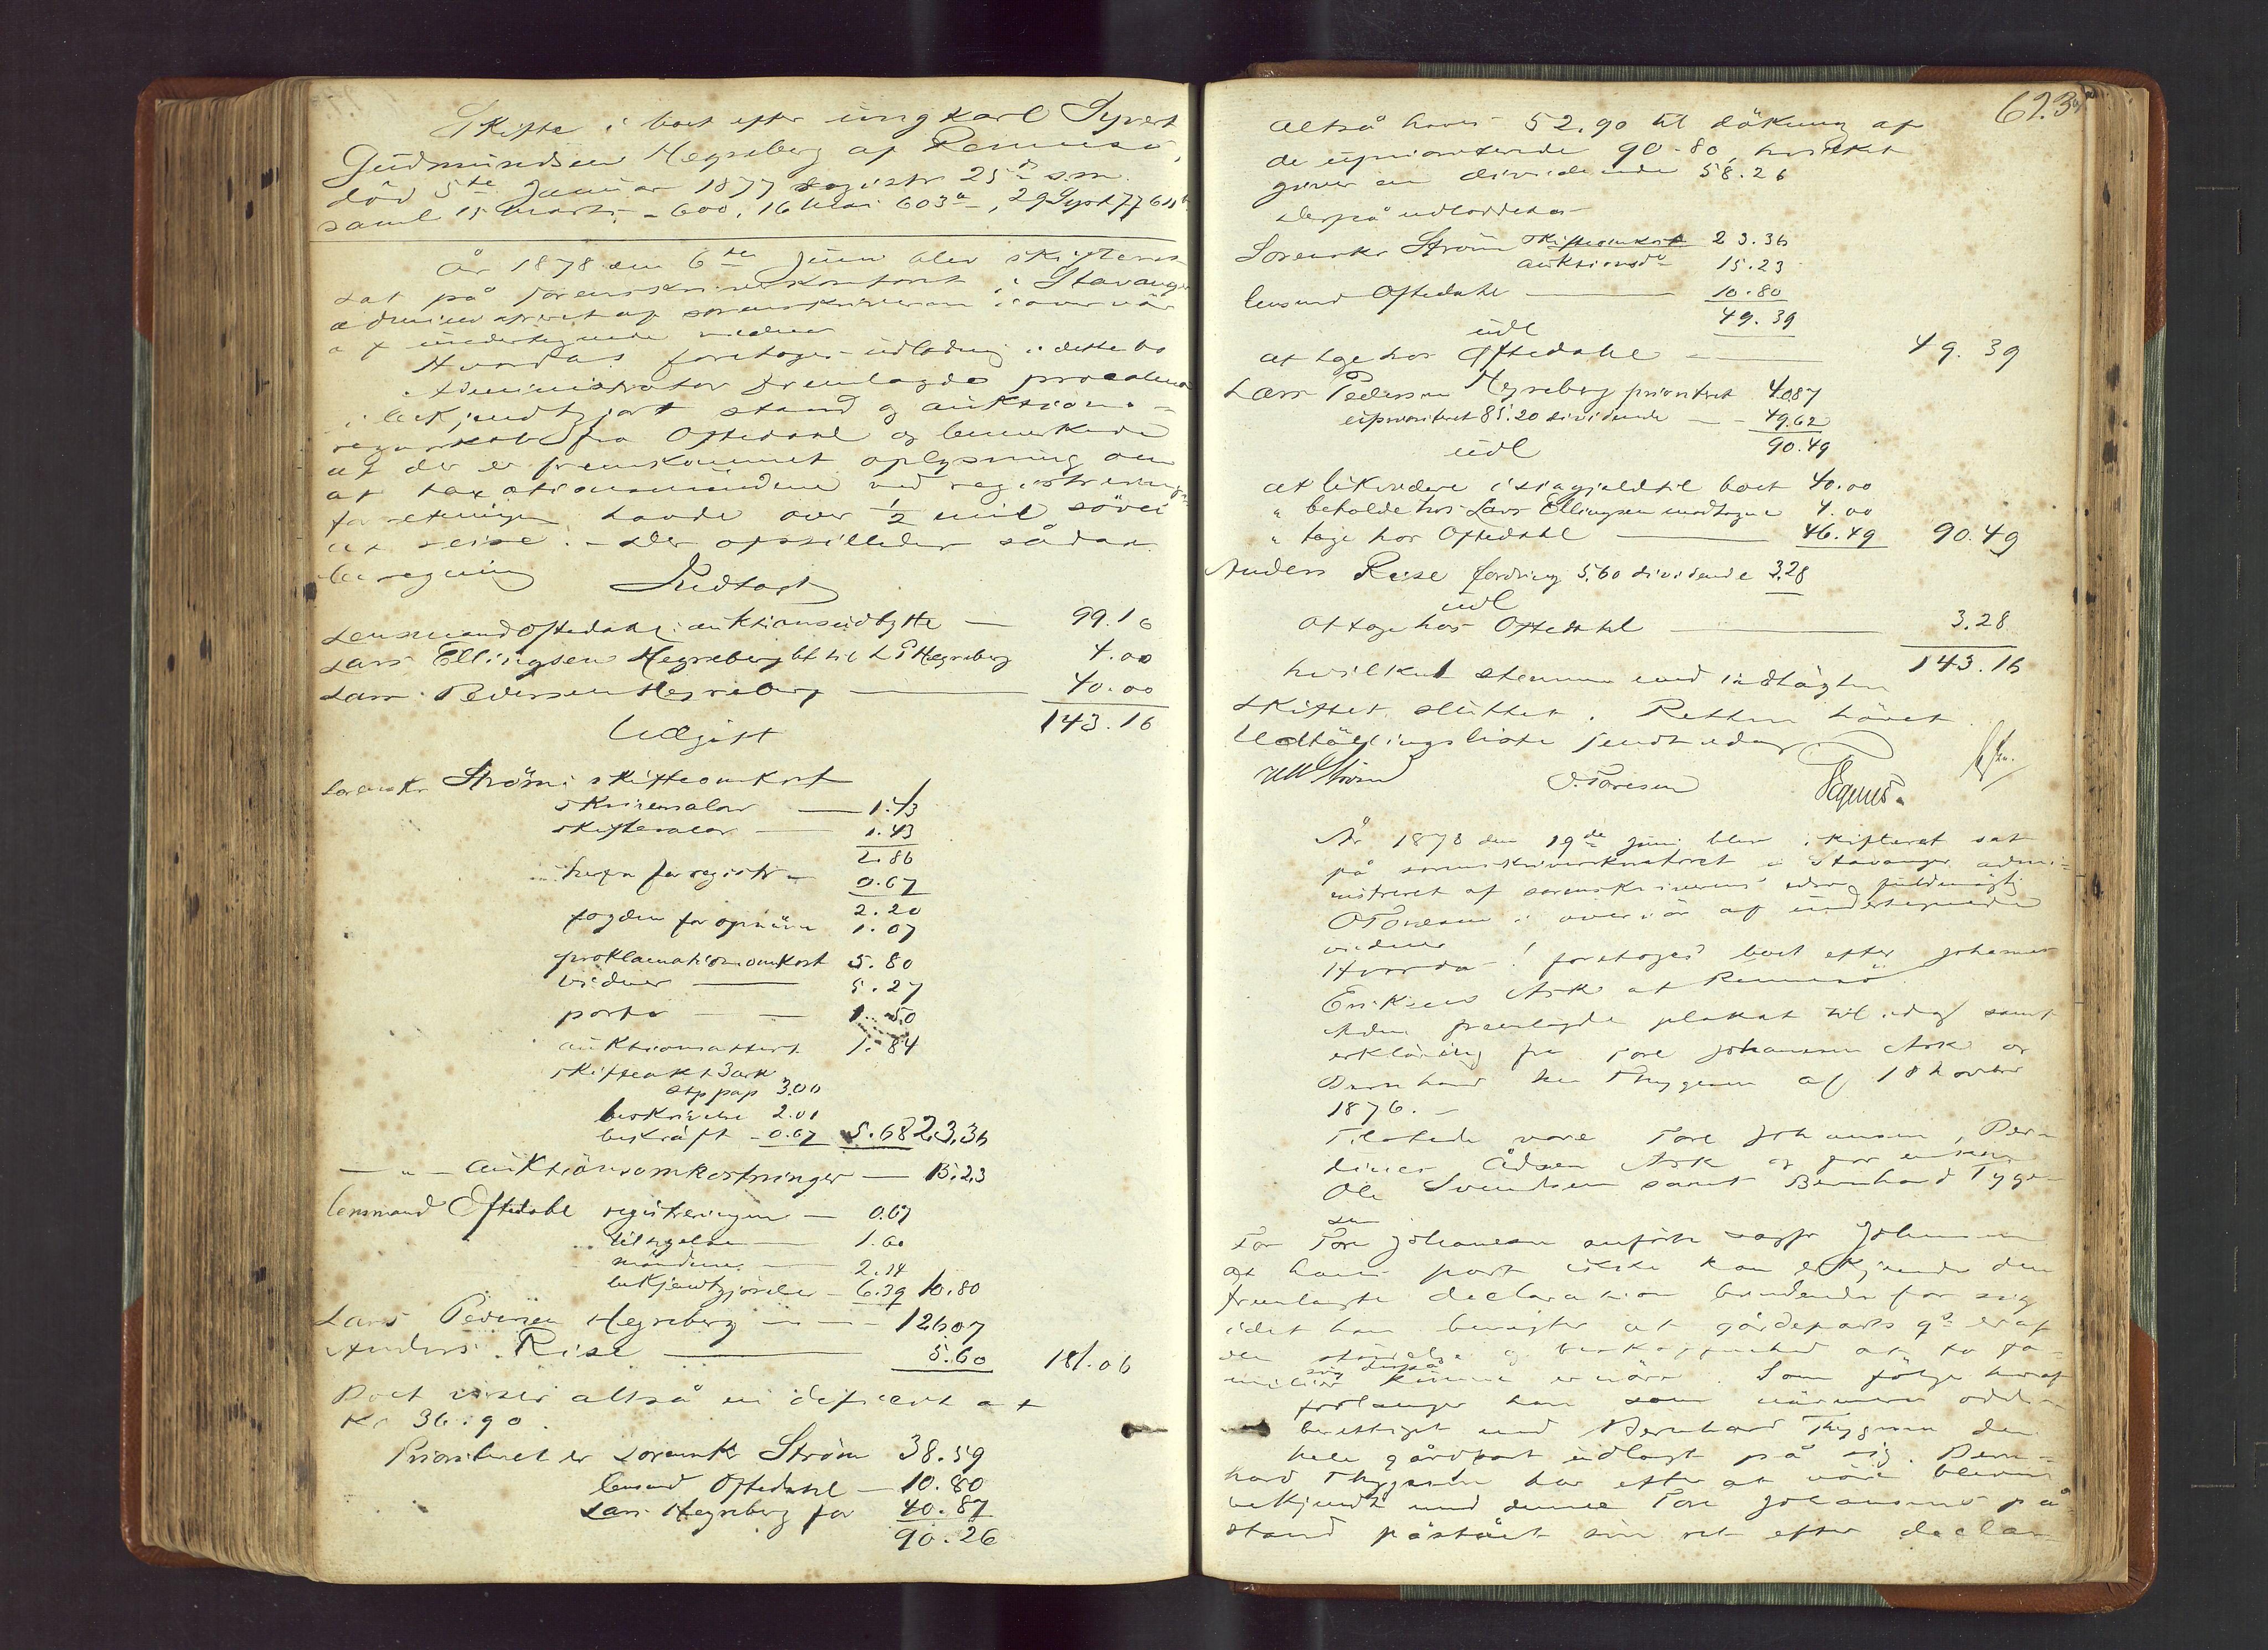 Skifte i boet efter ungkarl Syvert
Gudmundsen Hegreberg af Rennesö,
död 5te Januar 1877 registr 25de s.m.
saml 15 marts - 600, 16 Mai 603a, 29 Sept 77 611
År 1878 den 6te Juni blev skifteret
sat på sorenskriverkontoret i Stavanger
administreret af sorenskriveren i overvär
af undertegnede vidner
Hvorda foretoges udlodning i dette bo
Administrator fremlagde proclama
i bekjendtgjort stand og auktions-
regnskab fra Oftedahl og bemerkede
at der er fremkommet oplysning om
at taxationsmændene ved registrerings
forretningen havde over 1/2 mil sövei
at reise. - Der opstilledes sådan
beregning
Indtægt
Lensmand Oftedahl: auktionsudbytte — 99.16
Lars Ellingsen Hegreberg bet til L P Hegreberg 4.00
Lars Pedersen Hegreberg — 40.00
143.16
Udgift
Sorenskr Ström: skifteomkost
skriversalær — 1.43
skiftesalær — 1.43
2.86
herfra for registr — 0.67
2.20
fogden for opnävn 1.07
proklamationsomkost 5.80
vidner — 5.27
porto — 1.50
auktionsattest 1.84
skifteakt 3 ark
stp pap 3.00
beskrivelse 2.01
bekräft - 0.67 5.68 23.36
— " — auktionsomkostninger — 15.23
lensmand Oftedahl registreringen — 0.67
tilsigelse — 1.60
mändene — 2.14
bekjendtgjörelse — 6.39 10.80
Lars Pedersen Hegreberg — 126.07
Anders Rise — 5.60 181.06
Boet viser altså en deficit at
Kr 36.90.
Prioriteret er sorenskr Ström 38.59
lensmd Oftedahl — 10.80
Lars Hegreberg for 40.87
90.26
623a
altså haves 52.90 til däkning af
de uprioriterede 90-80, hvilket
giver en dividende 58.26
Derpå udloddedes
Sorenskr Ström skifteomkost 23.36
auktionsdo 15.23
lensmd Oftedahl — 10.80
49.39
udl
at tage hos Oftedahl — 49.39
Lars Pedersen Hegreberg prioriteret 40.87
uprioriteret 85.20 dividende — 49.62
udl 90.49
at likvidere i sin gjeld til boet 40.00
" beholde hos Lars Ellingsen modtagne 4.00
" tage hos Oftedahl — 46.49 90.49
Anders Rise fordring 5.60 dividende 3.28
udl
at tage hos Oftedahl — 3.28
143.16
hvilket stemmer med indtägten
Skiftet sluttet. Retten hävet.
Uddelingsliste sendt idag
Ström O. Toresen
År 1878 den 19de Juni blev skifteret sat
på sorenskriverkontoret i Stavanger admi-
nistreret af sorenskriverens edsvog fuldmägtig
O Toresen i overvär af undertegnede
vidner
Hvorda! foretoges boet efter Johannes
Eriksen Ask af Rennesö.
Adm fremlagde plakat til idag samt
erkläring fra Tore Johannesen Ask og
Bernhard Thygesen af 18 novbr
1876. —
Tilstede vare Tore Johannesen, Ber-
dines Ådsen Ask og for enken
Ole Svendsen samt Bernhard Tyge-
sen
For Tore Johannesen anförte sagfr Johnsen
at hans part ikke kan erkjende den
fremlagte declaration bindende for sig
idet han benegter at gårdeparts q. er af
den störrelse og beskaffenhed at to fa-
milier sig derpå kunne ernäre. Som fölge heraf
forlanger han som närmere odels-
berettiget end Bernhard Thygesen den
hele gårdpart udlagt på sig. Bern-
hard Thygesen har efter at väre bleven
bekjendt med denne Tore Johannesens på-
stand påstået sin ret efter declar-